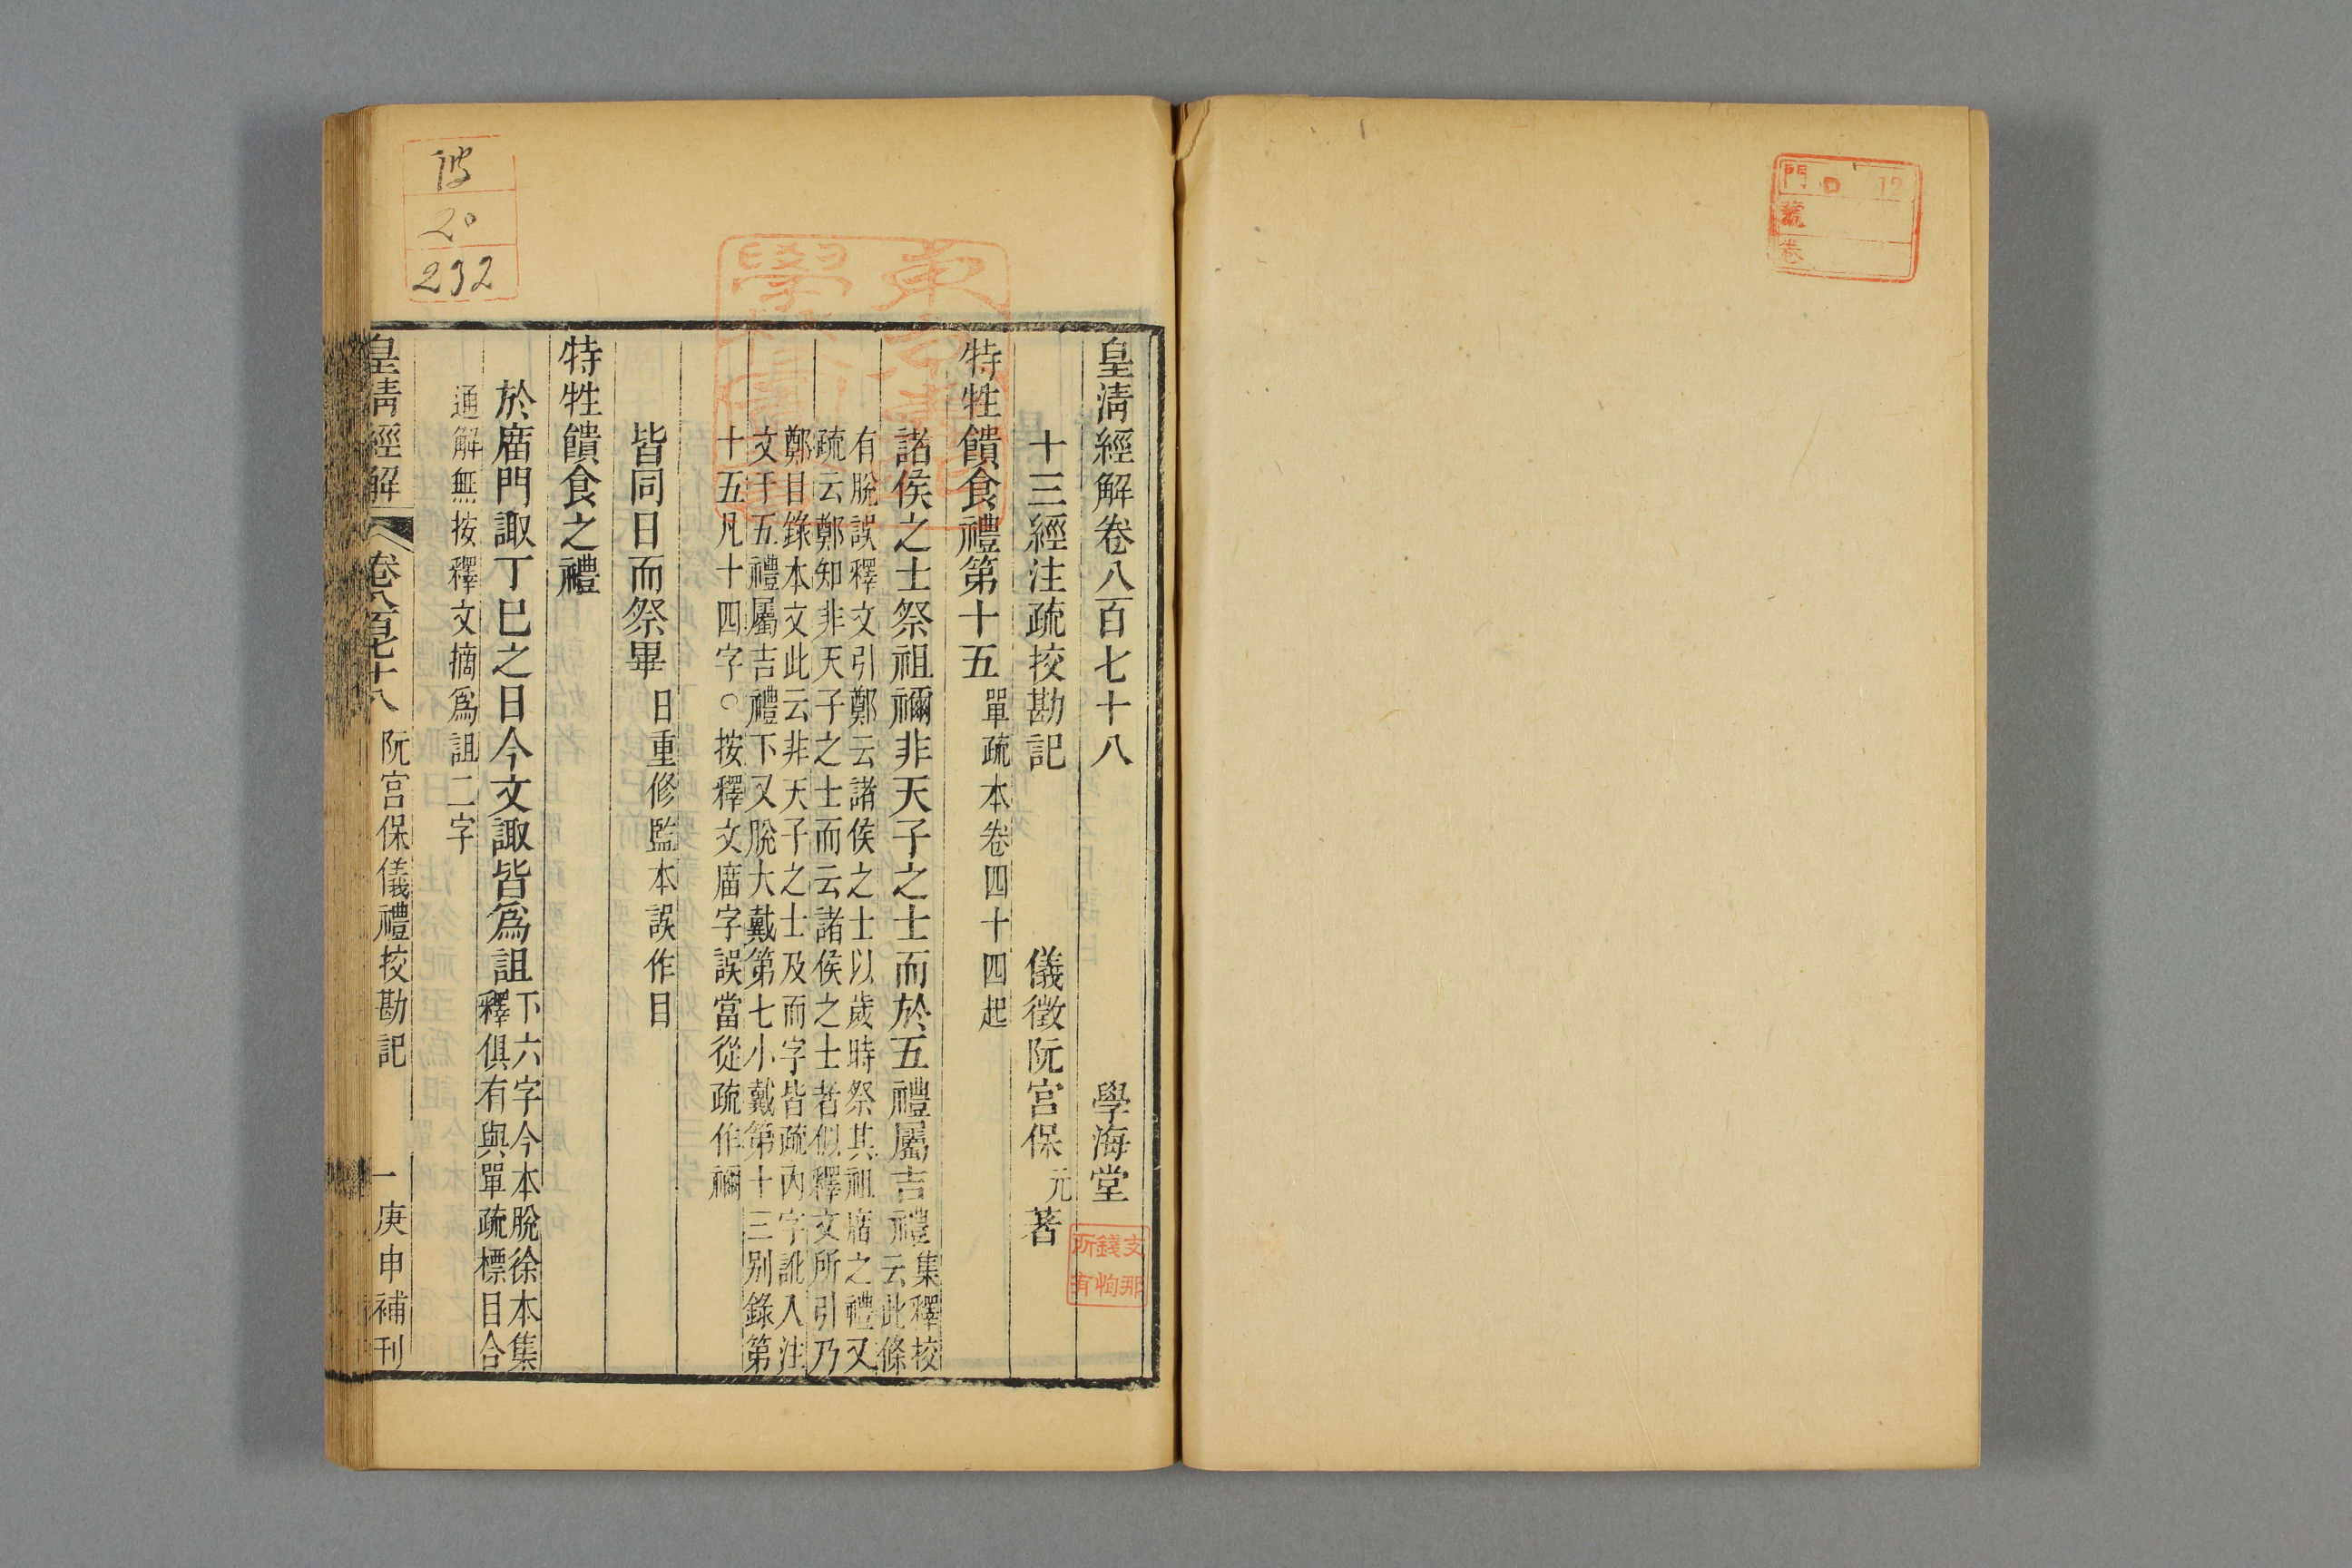 皇清經解卷八百七十八 學海堂
十三經注疏挍勘記 儀徵阮宮保元著
特牲饋食禮第十五 單疏本卷四十四起
諸侯之士祭祖禰非天子之士而於五禮屬吉禮 集釋校
云此條
有脫誤釋文引鄭云諸侯之士以歲時祭其祖庿之禮又
疏云鄭知非天子之士而云諸侯之士者似釋文所引乃
鄭目錄本文此云非天子之士及而字皆疏內字訛入注
文于五禮屬吉禮下又脫大戴第七小戴第十三別錄第
十五凡十四字○按釋文庿字誤當從疏作禰
皆同日而祭畢 日重修監本誤作目
特牲饋食之禮
於庿門諏丁巳之日今文諏皆爲詛 下六字今本脫徐本集
釋俱有與單疏標目合
通解無按釋文摘爲詛二字
皇清經解 卷八百七十八 阮宮保儀禮挍勘記 一 庚申補刊
20
232
門 12
號
卷
支那
錢物
所有